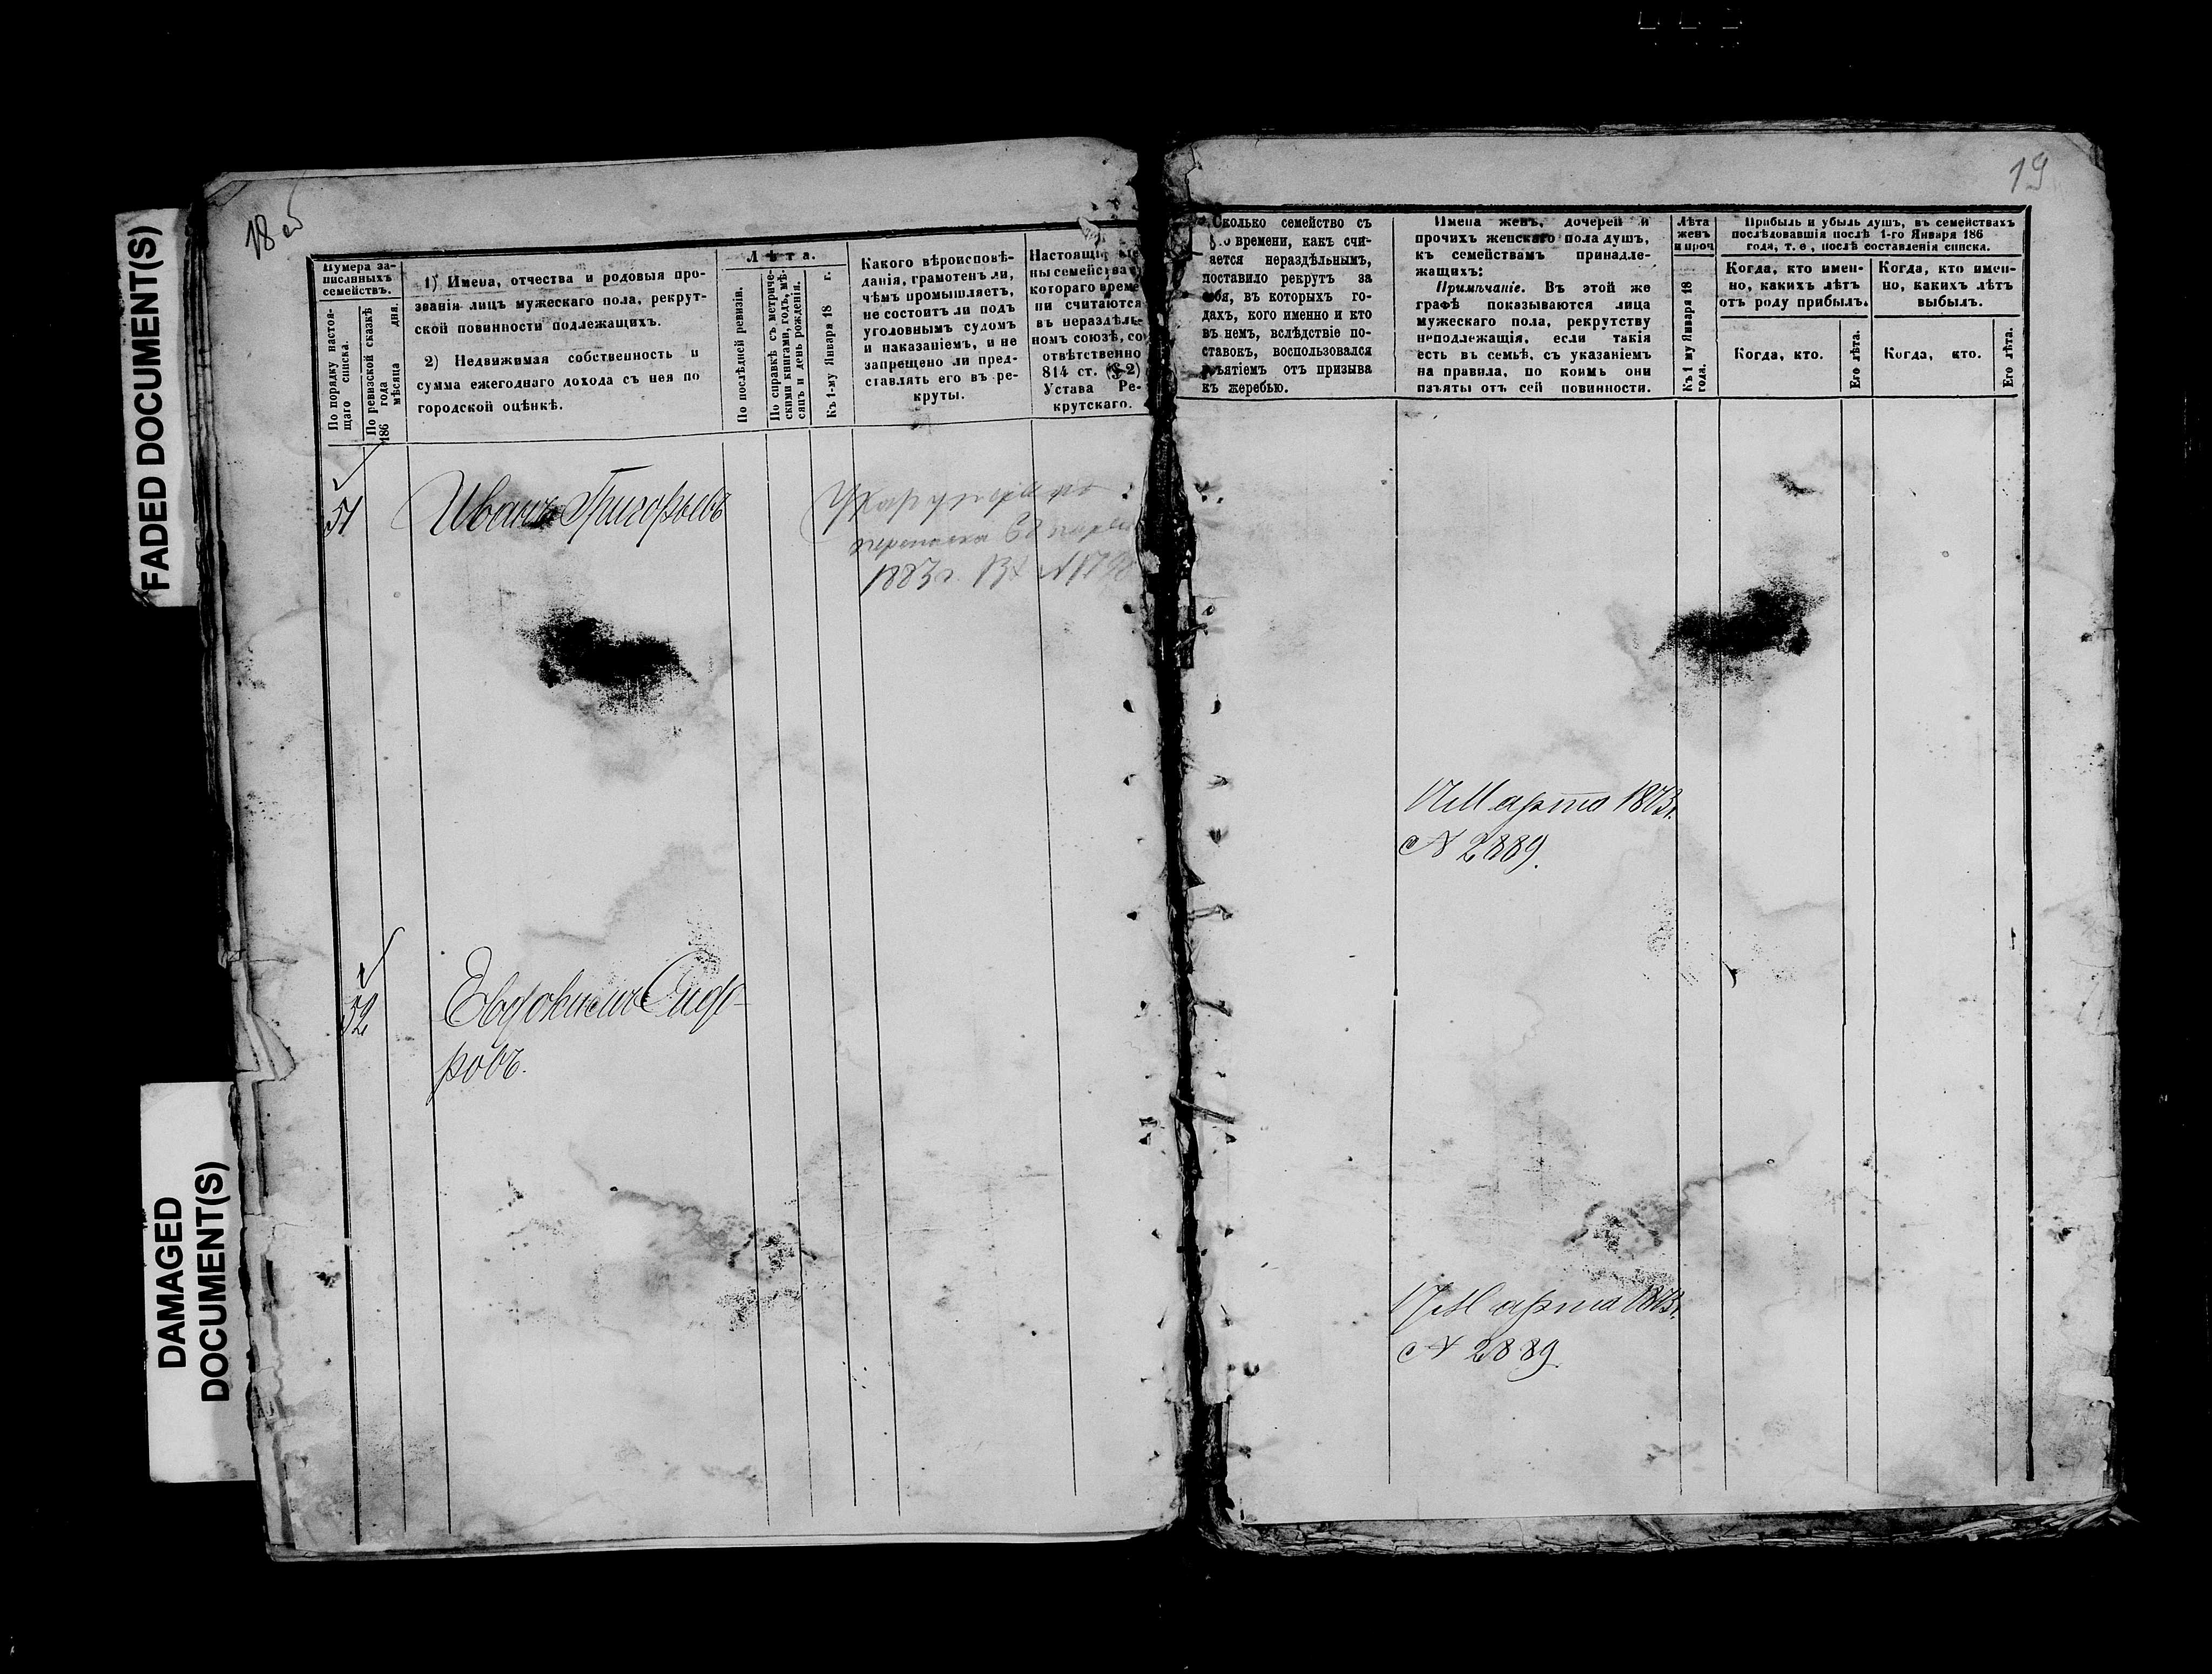 FADED DOCUMENT(S)
DAMAGED
DOCUMENT(S)
18 об
Нумера за-
писанныхъ
семействъ.
По порядку настоя-
щаго списка.
По ревизской сказкѣ
186 года
мѣсяца дня.
1) Имена, отчества и родовыя про-
званія лицъ мужескаго пола, рекрут-
ской повинности подлежащихъ.
2) Недвижимая собственность и
сумма ежегоднаго дохода съ нея по
городской оцѣнкѣ.
Лѣта.
По послѣдней ревизіи.
По справкѣ съ метриче-
скими книгами, годъ, мѣ-
сяцъ и день рожденія.
Къ 1-му Января 18 г.
Какого вѣроисповѣ-
данія, грамотенъ ли,
чѣмъ промышляетъ,
не состоитъ ли подъ
уголовнымъ судомъ
и наказаніемъ, и не
запрещено ли пред-
ставлять его въ ре-
круты.
Настоящі
ны семейства
котораго време
ни считаются
въ нераздѣль-
номъ союзѣ, со
отвѣтственно
814 ст. (§ 2)
Устава Ре-
крутскаго.
51
Иванъ Григорьевъ
1883 г.
52
Евдокимъ Сидо-
ровъ.
19
Сколько семейство съ
времени, какъ счи-
ается нераздѣльнымъ,
поставило рекрутъ за
себя, въ которыхъ го-
дахъ, кого именно и кто
въ немъ, вслѣдствіе по-
ставокъ, воспользовался
изъятіемъ отъ призыва
къ жеребью.
Имена женъ, дочерей и
прочихъ женскаго пола душъ,
къ семействамъ принадле-
жащихъ:
Примѣчаніе. Въ этой же
графѣ показываются лица
мужескаго пола, рекрутству
неподлежащія, если такія
есть въ семьѣ, съ указаніемъ
на правила, по коимъ они
изъяты отъ сей повинности.
Лѣта
женъ
и проч
Къ 1 му Января 18
года.
Прибыль и убыль душъ, въ семействахъ
послѣдовавшія послѣ 1-го Января 186
года, т. е., послѣ составленія списка.
Когда, кто имен-
но, какихъ лѣтъ
отъ роду прибылъ.
Когда, кто имен-
но, какихъ лѣтъ
выбылъ.
Когда, кто.
Его лѣта.
Когда, кто.
Его лѣта.
17 Марта 1873 г.
№ 2889.
17 Марта 1873 г.
№ 2889.